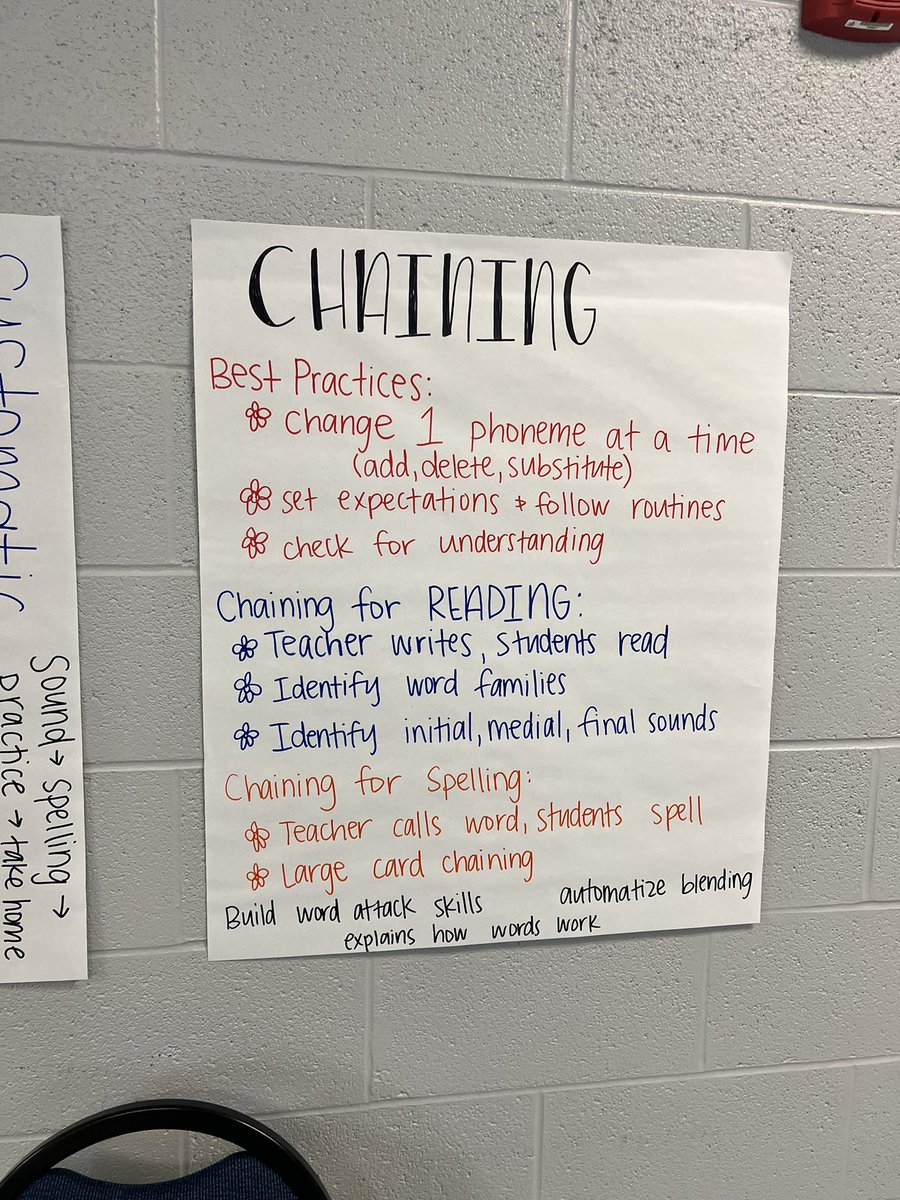 CHAINING
Best Practices:
Change 1 phoneme at a time
(add, delete, substitute)
set expectations + follow routines
check for understanding
Chaining for READING:
Teacher writes, students read
Identify word families
Identify initial, medial, final sounds
Chaining for Spelling:
Teacher calls word, students spell
Large card chaining
Build word attack skills
automatize blending
explains how words work
Sound → spelling →
practice → take home